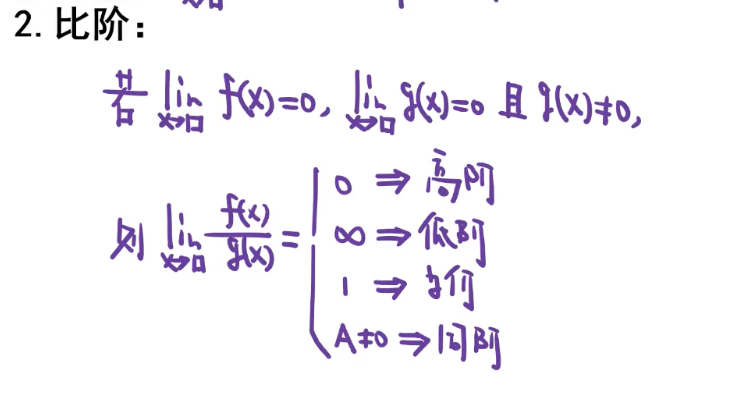 2. 比阶：
若 lim x→□ f(x)=0, lim x→□ g(x)=0 且 g(x)≠0,
则 lim x→□ f(x)/g(x) = { 0 ⇒ 高阶
∞ ⇒ 低阶
1 ⇒ 等价
A≠0 ⇒ 同阶